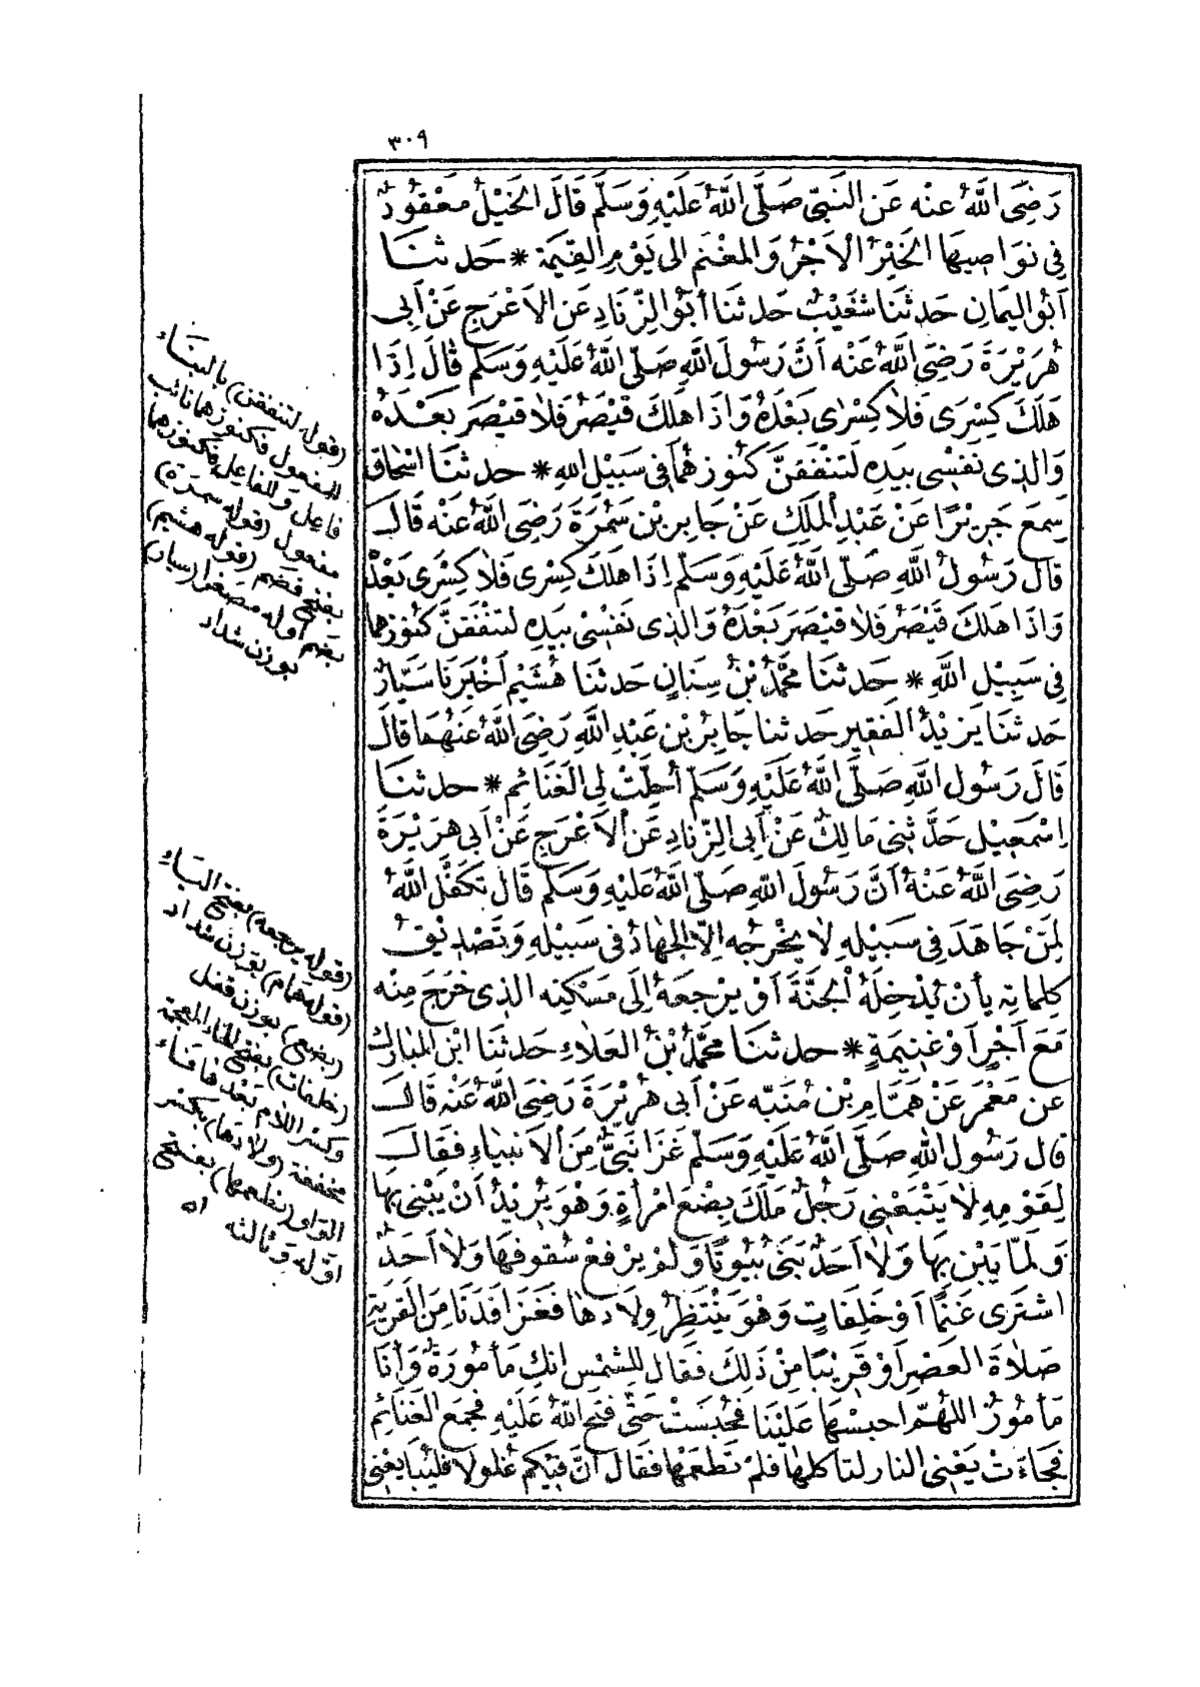 ٣٠٩
رَضِىَ اللَّهُ عَنْه عَنِ النَّبِىّ صَلَّى اللَّهُ عَلَيْهِ وَسَلَّمَ قَالَ الخَيْلُ مَعْقُودٌ
فِى نَوَاصِيهَا الخَيْرُ الأَجْرُ وَالمَغْنَم الى يَوْمِ القِيمَة * حَدثنَا
أَبُو اليَمَانِ حَدثنَا شُعَيْبٌ حَدثنَا أَبُو الزِّنَادِ عَنِ الاَعْرَجِ عَنْ أَبِى
هُرَيْرَةَ رَضِىَ اللَّهُ عَنْه أَنَّ رَسُولَ اللَّهِ صَلَّى اللَّهُ عَلَيْهِ وَسَلَّم قَالَ إِذَا
هَلَكَ كِسْرَى فَلاَ كِسْرَى بَعْدَهُ وَاذَا هَلَكَ قَيْصَرُ فَلاَ قَيْصَرَ بَعْدَهُ
وَالذِى نَفْسِى بِيَدِهِ لَتنْفَقنَّ كُنوزهُمَا فى سَبِيْلِ اللهِ * حدثنَا اسْحَاق
سِمعَ جَرِيْرًا عَنْ عَبْدِ المَلَكِ عَنْ جَابِرِ بْنِ سَمُرَةَ رَضِىَ اللَّهُ عَنْه قَالَ
قَال رَسُولُ اللَّهِ صَلَّى اللَّهُ عَلَيْهِ وَسَلَّم إِذَا هَلَكَ كِسْرى فَلاَ كِسْرَى بَعْدَهُ
وَاذَا هَلَكَ قَيْصَرُ فَلاَ قَيْصَرَ بَعْدَهُ وَالذِى نَفْسِى بِيَدِه لتنْفَقنَّ كُنوزهما
فِى سَبِيْلِ اللَّهِ * حَدثنَا مُحَمَّدُ بْنُ سِنَانٍ حَدثنَا هُشَيْمٌ أَخْبَرَنَا سَيَّارٌ
حَدثنَا يَزِيْدُ الفَقِير حَدثنا جَابِرُ بْنِ عَبْدِ اللَّهِ رَضِىَ اللَّهُ عَنْهُمَا قَالَ
قَالَ رَسُول اللَّهِ صَلَّى اللَّهُ عَلَيْهِ وَسَلَّم أُحِلَّتْ لِى الغَنَائِم * حدثنَا
إِسْمَعِيْل حَدَّثنِى مَالِكٌ عَنْ أَبِى الزِّنادِ عَن الاَعْرَجِ عَنْ أَبى هرَيْرَةَ
رَضِىَ اللَّهُ عَنْهُ أَنَّ رَسُولَ اللهِ صَلَّى اللَّهُ عَلَيْهِ وَسَلَّم قَالَ تَكَفَّلَ اللَّهُ
لِمَنْ جَاهَدَ فِى سَبِيْلِهِ لاَ يُخْرِجُه إِلاَّ الجِهَادُ فِى سَبِيلِهِ وَتَصْدِيْقُ
كلِمَاتِهِ بِأَنْ يُدْخِلَهُ الجَنَّةَ أَوْ يَرْجِعَهُ إِلَى مَسْكَنِه الذِى خَرَجَ مِنْه
مَعَ أَجْرٍ أَوْ غَنِيمَةٍ * حدثنَا مُحَمَّدُ بْنُ العَلاَءِ حَدثنَا ابْن المُبَارك
عن مَعْمَرٍ عَنْ هَمَّامِ بْنِ مُنَبِّه عَنْ أَبى هُرَيْرَةَ رَضِىَ اللَّهُ عَنْه قَالَ
قَال رَسُولُ اللهِ صَلَّى اللَّهُ عَلَيْهِ وَسَلَّم غَزَا نَبِىٌّ مِنَ الاَنبيَاءِ فَقَالَ
لِقَوْمِهِ لاَ يَتْبَعْنِى رَجُلٌ مَلَكَ بِضْعَ امْرأَةٍ وَهُوَ يُرِيْدُ أَنْ يَبْنِى بهَا
وَلمَّا يَبْنِ بِهَا وَلاَ أَحَدٌ بَنَى بُيُوتًا وَلَمْ يرْفعْ سُقوفهَا وَلاَ أحَدٌ
اشتَرى غَنَمًا أَوْ خَلِفَاتٍ وَهُوَ يَنْتَظِرُ وِلاَدهَا فَغَزَا فَدَنَا مِنَ القَرْيَةِ
صَلاَةَ العَصْرِ أَوْ قَرِيْبًا مِنْ ذَلِكَ فَقَال للشمْسِ انكِ مَأمُورَةٌ وَأَنَا
مَأمُورٌ اللهُمَّ احبسْهَا عَلَيْنَا فَحُبسَتْ حَتَّى فتَحَ اللهُ عَلَيْهِ فجمَعَ الغَنَائِم
فَجَاءَتْ يَعْنِى النار لتأكلهَا فَلمْ تَطعَمْهَا فَقَالَ انَّ فِيْكُم غُلولاً فَليُبَايعْنِى
(قوله لتنفقن) بالبنَاء
للمفعول فكنوزهما نائب
فاعِل وَللفاعِل فكنوزهما
مفعول (قوله سمرَة)
بفتح فضم (قوله هشيم)
بضم اوله مصغرا (سيار)
بوزن شداد
(قوله يرجعه) بفتح اليَاءِ
(قوله همام) بوزن شداد
(بضع) بوزن قفل
(خلفات) بفتح الخاء المعجمة
وكسْر اللام بَعْدها فَاء
مخففة (ولادها) بكسْر
الواو (تطعمها) بفتح
اوّله وَثالثه اه